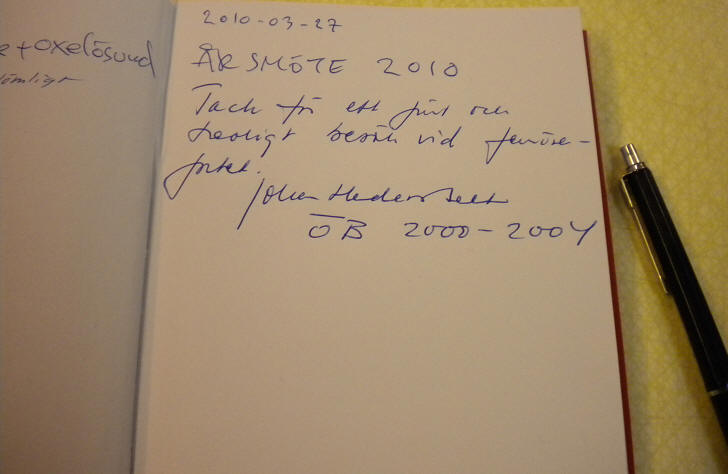 e + oxelösund
2010-03-27
ÅRSMÖTE 2010
Tack för ett fint och
trevligt besök vid Femöre-
fortet.
Johan Hederstedt
ÖB 2000-2004